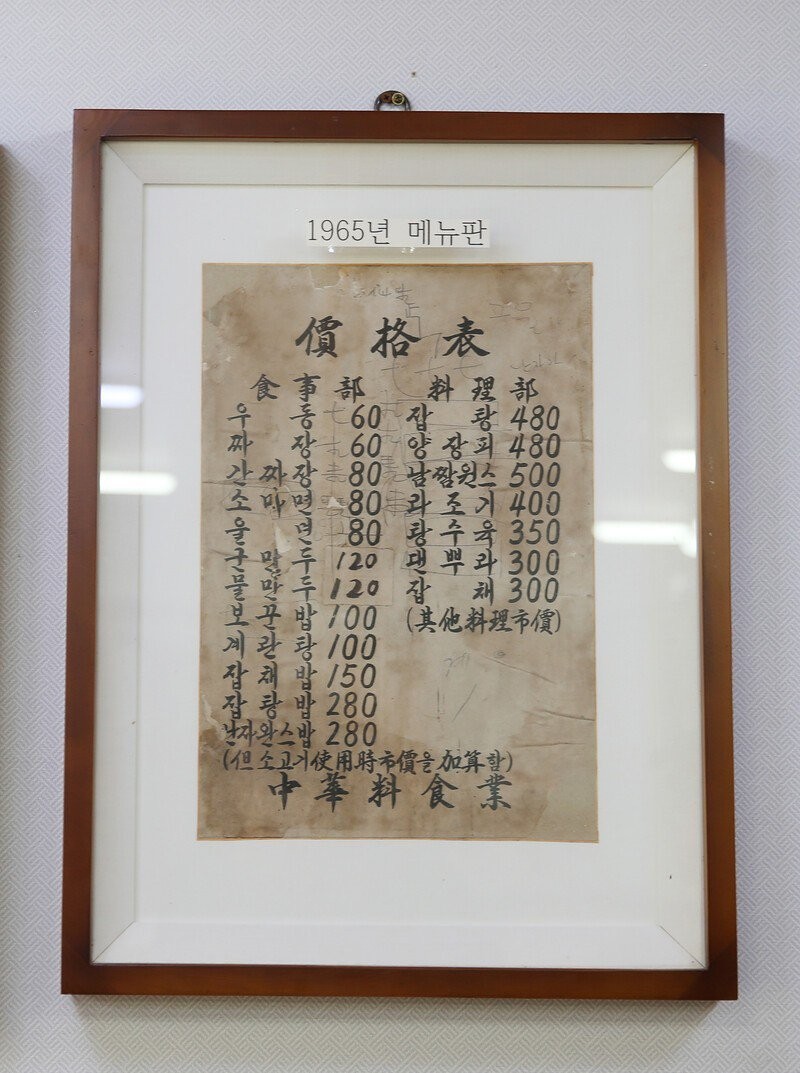 1965년 메뉴판
價格表
食事部
우동 60
짜장 60
간짜장 80
소마면 80
울면 80
군만두 120
물만두 120
보꾼밥 100
계란탕 100
잡채밥 150
잡탕밥 280
난자완스밥 280
(但소고기使用時市價을加算함)
料理部
잡탕 480
양장피 480
남짬원스 500
라조기 400
탕수육 350
댄뿌라 300
잡채 300
(其他料理市價)
中華料食業